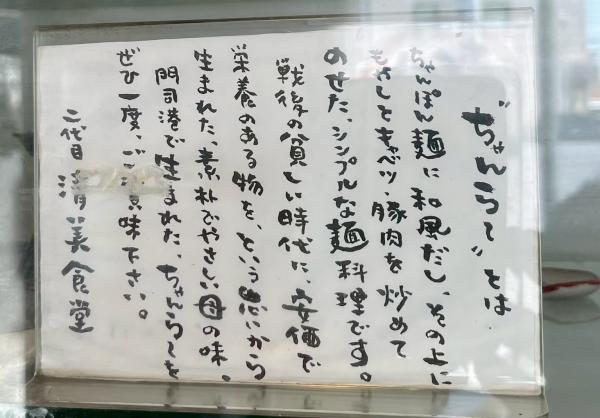 "ちゃんらー"とは
ちゃんぽん麺に和風だし、その上に
もやしとキャベツ・豚肉を炒めて
のせた、シンプルな麺料理です。
戦後の貧しい時代に、安価で
栄養のある物を、という思いから
生まれた、素朴でやさしい母の味。
門司港で生まれた、ちゃんらーを
ぜひ一度、ご賞味下さい。
二代目 清美食堂